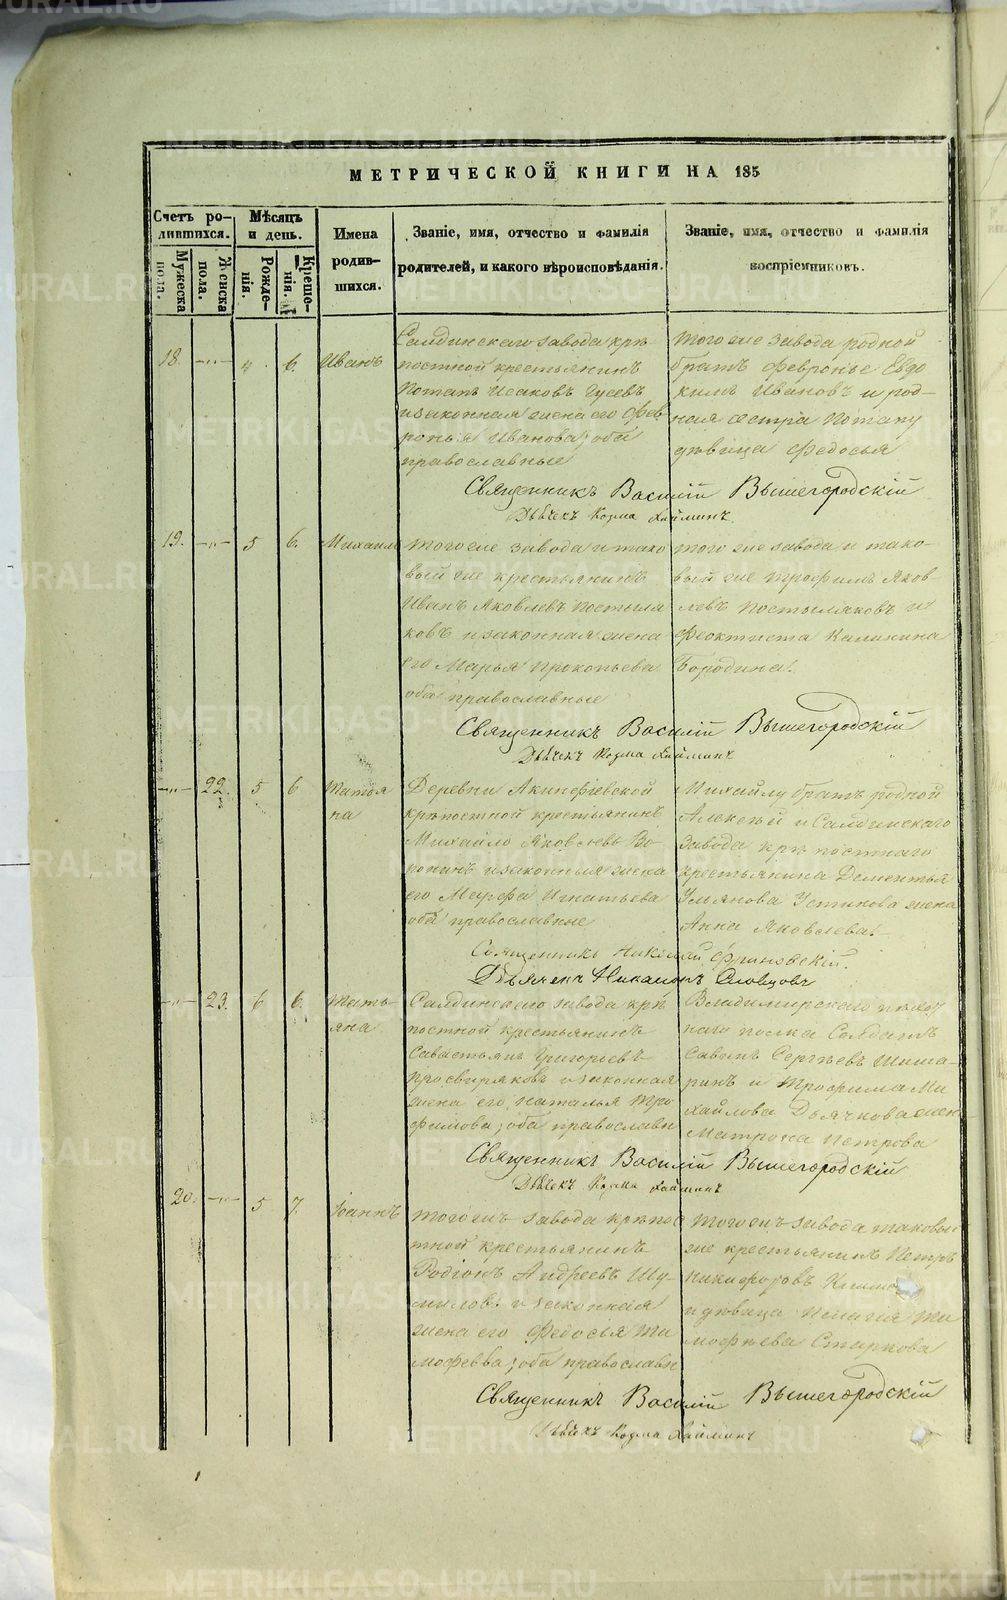 МЕТРИЧЕСКОЙ КНИГИ НА 185
Счетъ ро-
дившихся.
Мѣсяцъ
и день.
Имена
родив-
шихся.
Званіе, имя, отчество и фамилія
родителей, и какого вѣроисповѣданія.
Званіе, имя, отчество и фамилія
воспріемниковъ.
Мужеска
пола.
Женска
пола.
Рожде-
нія.
Креще-
нія.
18. 4 6. Иванъ
Салдинскаго завода крѣ
постной крестьянинъ
Потапъ Исаковъ Гусевъ
и законная жена его Фев
ронья Иванова; оба
православные
того же завода родной
братъ Февронье Евдо
кимъ Ивановъ и род-
ная сестра Потапу
дѣвица Федосья
Священникъ Василій Вышегородскій
Дьячекъ Козма Хайминъ
19. 5 6. Михаилъ
того же завода и тако
вый же крестьянинъ
Иванъ Яковлевъ Постыля
ковъ и законная жена
его Марья Прокопьева
оба православные
того же завода и тако-
вый же Трофимъ Яков-
левъ Постыляковъ и
Феоктиста Калинина
Бородина.
Священникъ Василій Вышегородскій
Дьячекъ Козма Хайминъ
22. 5 6 Татья
на
Деревни Акинфіевской
крѣпостной крестьянинъ
Михайло Яковлевъ Во-
ронинъ и законная жена
его Марфа Игнатьева
оба православные
Михайлу братъ родной
Алексѣй и Салдинскаго
завода крѣпостнаго
крестьянина Дементья
Ульянова Устинова жена
Анна Яковлева.
Священникъ Николай
Дьячекъ Никаноръ Словцовъ
23. 6 6. Тать-
яна
Салдинскаго завода крѣ
постной крестьянинъ
Савастьянъ Григорьевъ
Просвиряковъ и законная
жена его Наталья Тро
фимова; оба православн
Владимирскаго пѣхот
наго полка Солдатъ
Савинъ Сергѣевъ Шига-
ринъ и Трофима Ми
хайлова Дьячкова жен
Матрона Петрова
Священникъ Василій Вышегородскій
Дьячекъ Козма Хайминъ
20. 5 7. Іоаннъ
того жъ завода крѣпос
тной крестьянинъ
Родіонъ Андреевъ Шу-
миловъ и законная
жена его Федосья Ти
мофеева; оба православн
того жъ завода таковой
же крестьянинъ Петръ
Никифоровъ
и дѣвица Ти
мофѣева Старкова
Священникъ Василій Вышегородскій
Дьячекъ Козма Хайминъ
METRIKI.GASO-URAL.RU